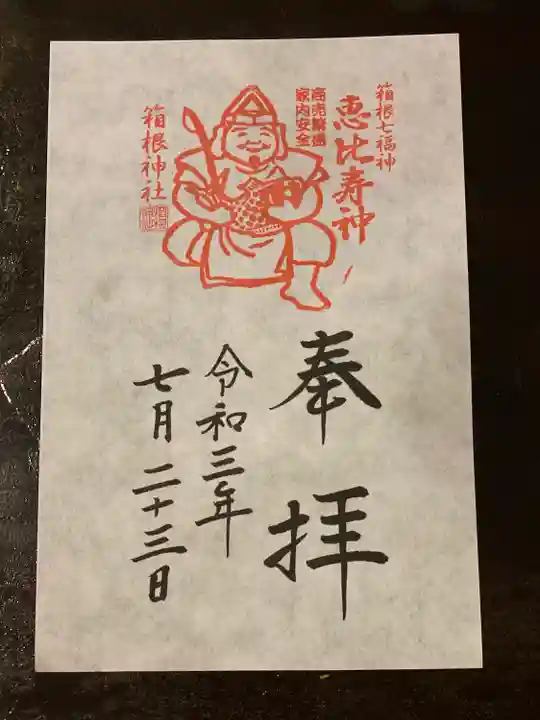 箱根七福神
恵比寿神
商売繁盛
家内安全
箱根神社
奉拝
令和三年
七月二十三日